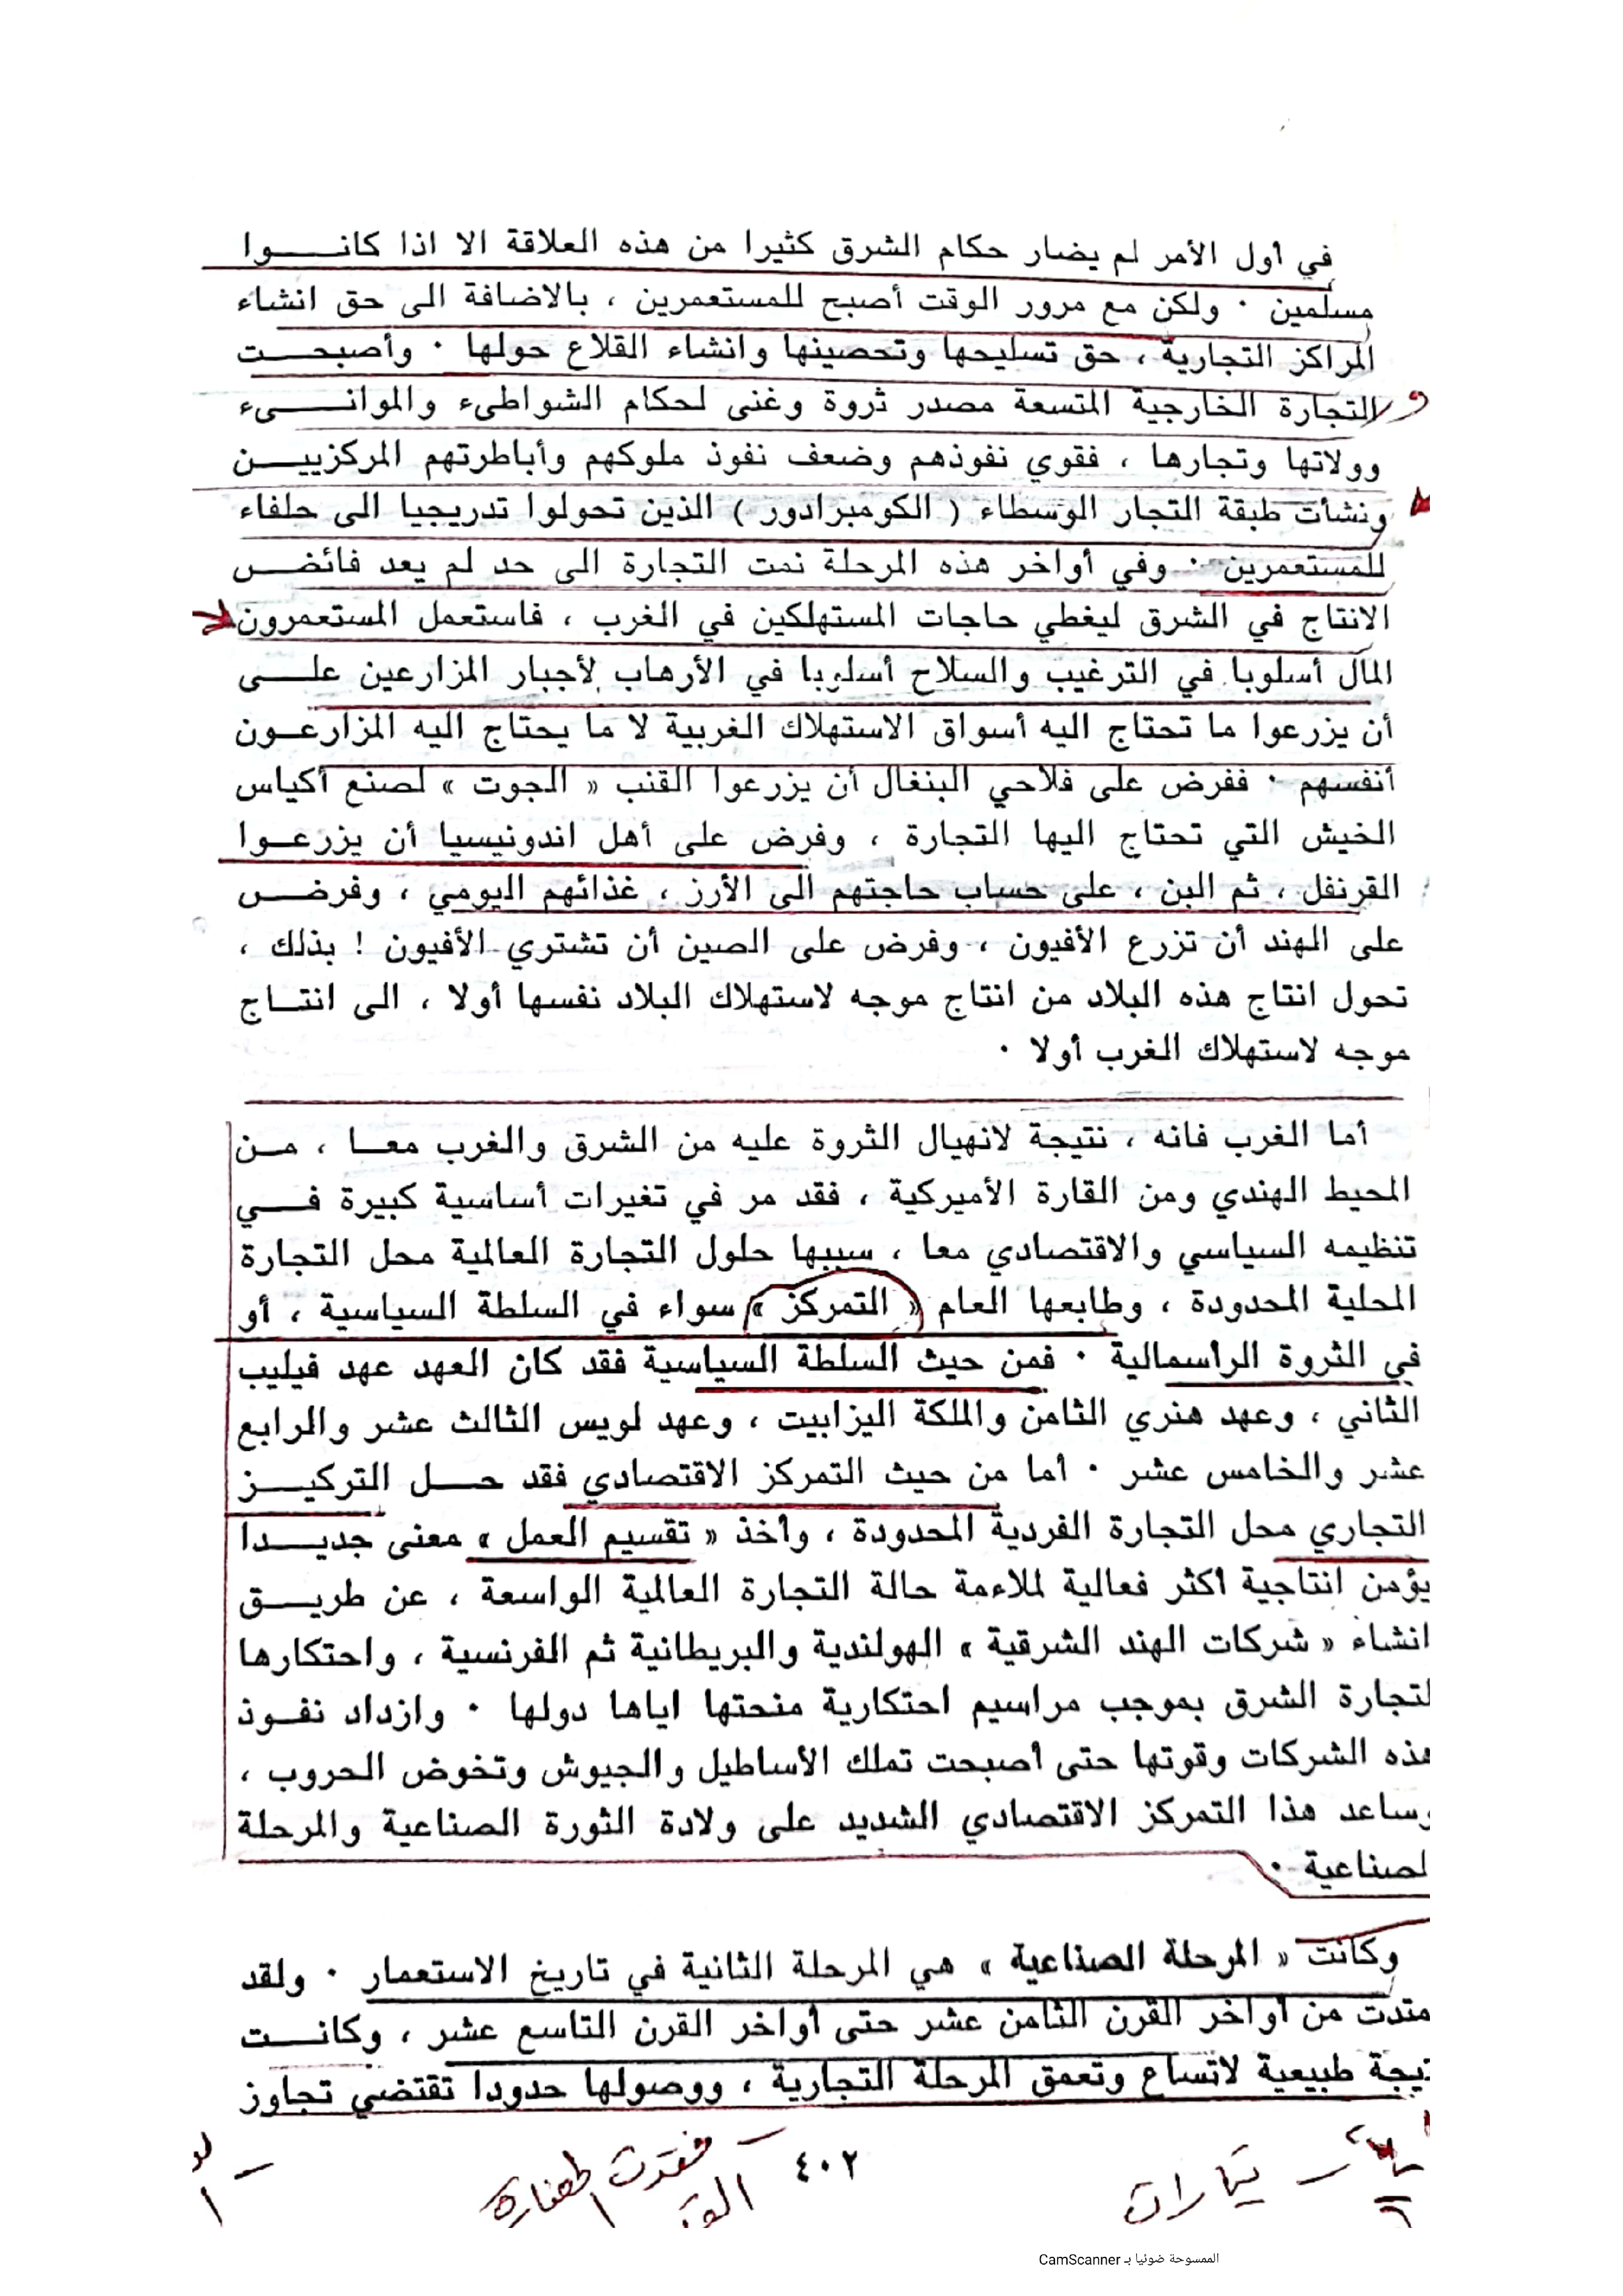 في أول الأمر لم يضار حكام الشرق كثيرا من هذه العلاقة الا اذا كانوا
مسلمين . ولكن مع مرور الوقت أصبح للمستعمرين ، بالاضافة الى حق انشاء
المراكز التجارية ، حق تسليحها وتحصينها وانشاء القلاع حولها . وأصبحت
التجارة الخارجية المتسعة مصدر ثروة وغنى لحكام الشواطىء والموانىء
وولاتها وتجارها ، فقوي نفوذهم وضعف نفوذ ملوكهم وأباطرتهم المركزيين
ونشأت طبقة التجار الوسطاء ( الكومبرادور ) الذين تحولوا تدريجيا الى حلفاء
للمستعمرين . وفي أواخر هذه المرحلة نمت التجارة الى حد لم يعد فائض
الانتاج في الشرق ليغطي حاجات المستهلكين في الغرب ، فاستعمل المستعمرون
المال أسلوبا في الترغيب والسلاح أسلوبا في الأرهاب لأجبار المزارعين على
أن يزرعوا ما تحتاج اليه أسواق الاستهلاك الغربية لا ما يحتاج اليه المزارعون
أنفسهم . ففرض على فلاحي البنغال أن يزرعوا القنب « الجوت » لصنع أكياس
الخيش التي تحتاج اليها التجارة ، وفرض على أهل اندونيسيا أن يزرعوا
القرنفل ، ثم البن ، على حساب حاجتهم الى الأرز ، غذائهم اليومي ، وفرض
على الهند أن تزرع الأفيون ، وفرض على الصين أن تشتري الأفيون ! بذلك ،
تحول انتاج هذه البلاد من انتاج موجه لاستهلاك البلاد نفسها أولا ، الى انتاج
موجه لاستهلاك الغرب أولا .
أما الغرب فانه ، نتيجة لانهيال الثروة عليه من الشرق والغرب معا ، من
المحيط الهندي ومن القارة الأميركية ، فقد مر في تغيرات أساسية كبيرة في
تنظيمه السياسي والاقتصادي معا ، سببها حلول التجارة العالمية محل التجارة
المحلية المحدودة ، وطابعها العام « التمركز » سواء في السلطة السياسية ، أو
في الثروة الراسمالية . فمن حيث السلطة السياسية فقد كان العهد عهد فيليب
الثاني ، وعهد هنري الثامن والملكة اليزابيت ، وعهد لويس الثالث عشر والرابع
عشر والخامس عشر . أما من حيث التمركز الاقتصادي فقد حل التركيز
التجاري محل التجارة الفردية المحدودة ، وأخذ « تقسيم العمل » معنى جديدا
يؤمن انتاجية اكثر فعالية لملاءمة حالة التجارة العالمية الواسعة ، عن طريق
انشاء « شركات الهند الشرقية » الهولندية والبريطانية ثم الفرنسية ، واحتكارها
لتجارة الشرق بموجب مراسيم احتكارية منحتها اياها دولها . وازداد نفوذ
هذه الشركات وقوتها حتى أصبحت تملك الأساطيل والجيوش وتخوض الحروب ،
وساعد هذا التمركز الاقتصادي الشديد على ولادة الثورة الصناعية والمرحلة
لصناعية .
وكانت « المرحلة الصناعية » هي المرحلة الثانية في تاريخ الاستعمار . ولقد
متدت من أواخر القرن الثامن عشر حتى أواخر القرن التاسع عشر ، وكانت
تيجة طبيعية لاتساع وتعمق المرحلة التجارية ، ووصولها حدودا تقتضي تجاوز
٤٠٢
تيارات
الممسوحة ضوئيا بـ CamScanner